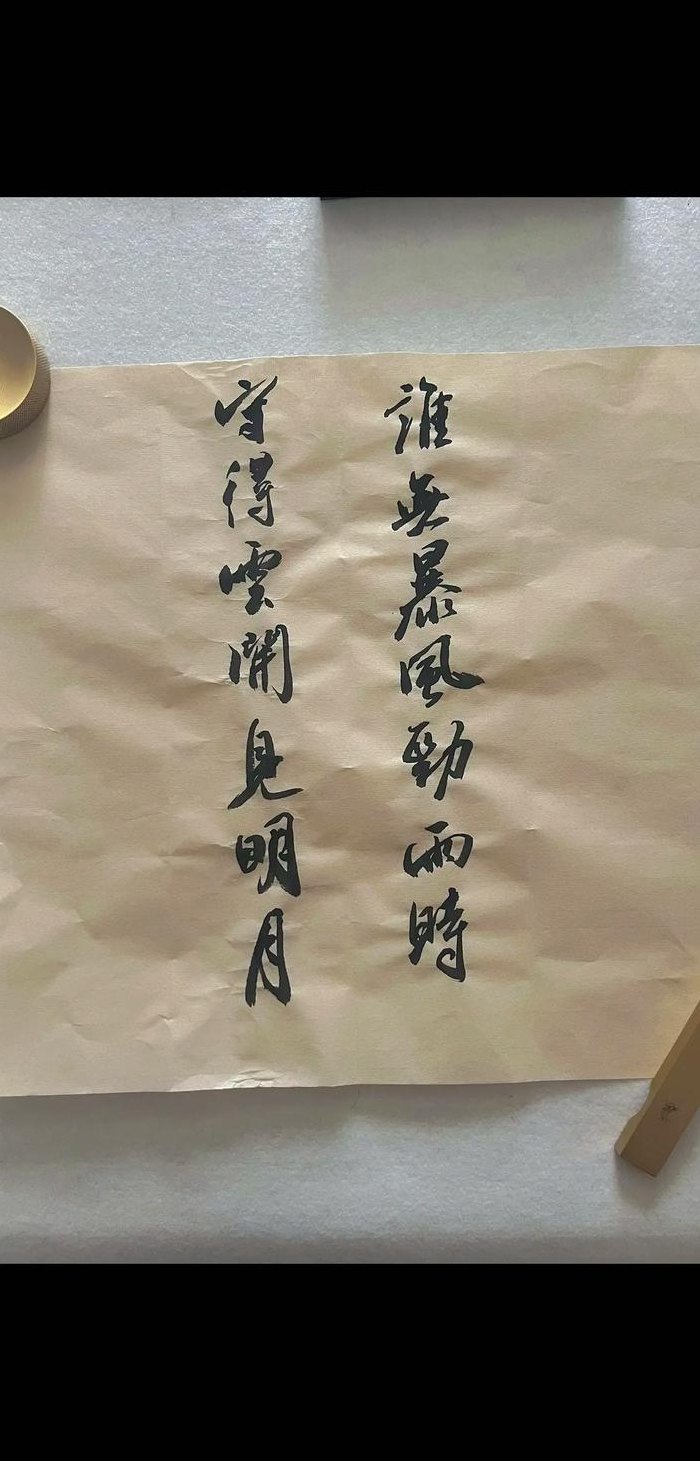 誰無暴風勁雨時
守得雲開見明月